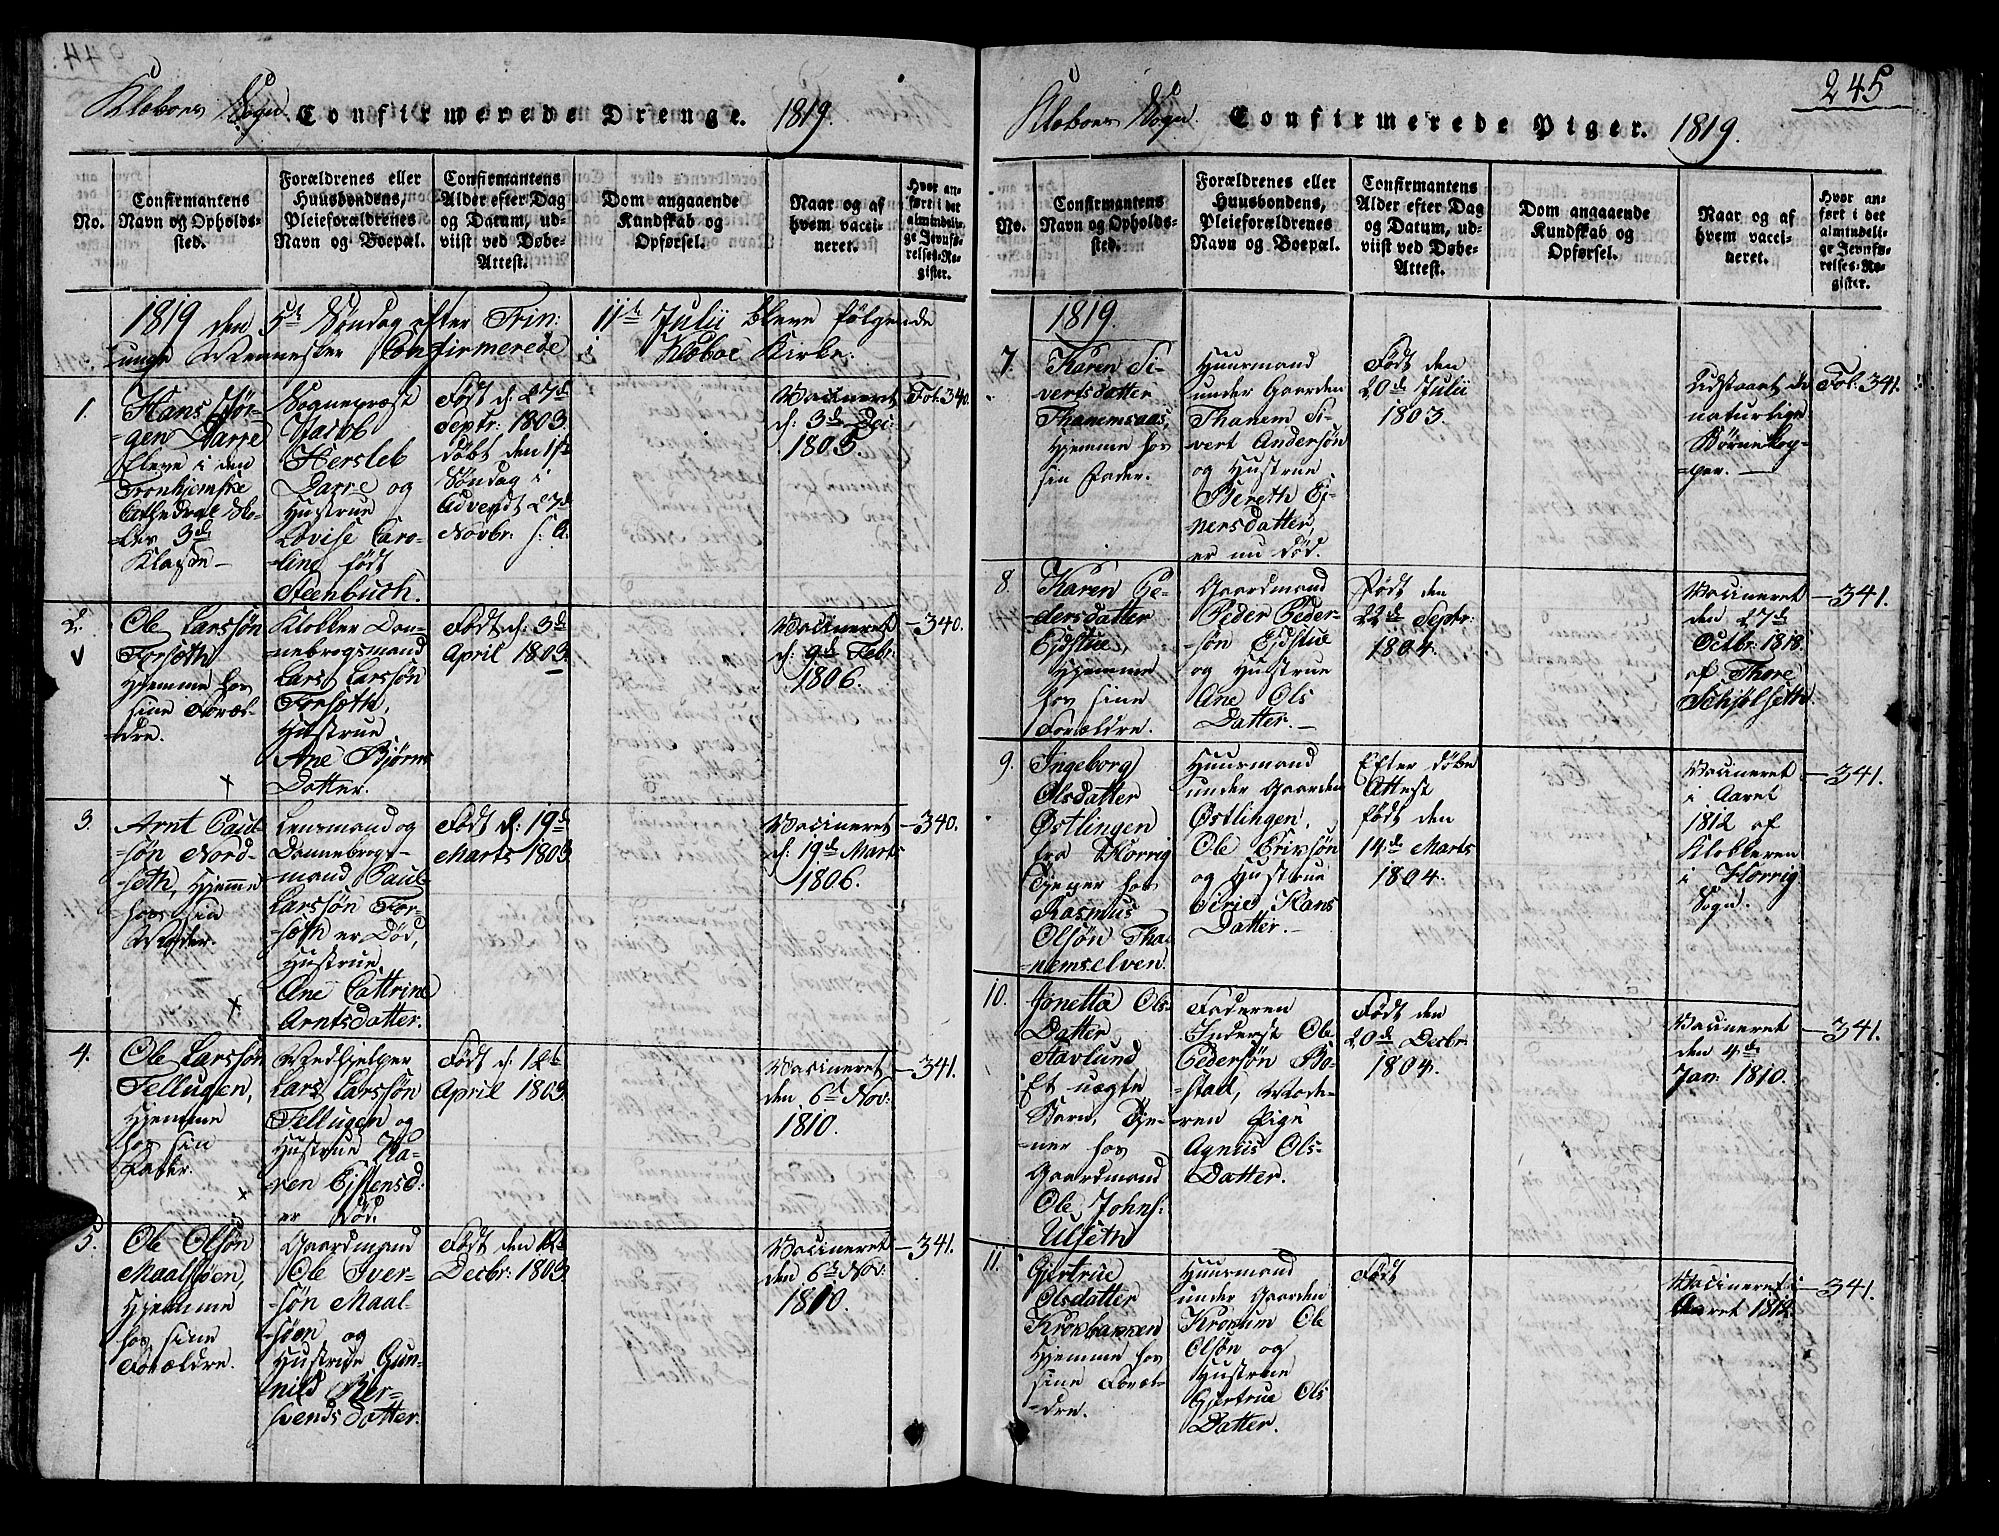 Klæboes Sogn. Confirmerede Drenge. 1819.
No.
Confirmantens
Navn og Opholds-
sted.
Forældrenes eller
Huusbondens,
Pleieforældrenes
Navn og Boepæl.
Confirmantens
Alder efter Dag
og Datum, ud-
viist ved Døbe-
Attest.
Dom angaaende
Kundskab og
Opførsel.
Naar og af
hvem vacci-
neret.
Hvor an-
ført i det
almindeli-
ge Jevnfø-
relses-Re-
gister.
1819 den 5te Søndag efter Trin: 11te Julii bleve følgende
unge Mennesker Confirmerede i Klæboe Kirke:
1.
Hans Jør-
gen Darre
Eleve i den
Tronhjemske
Cathedral Sko-
les 3die
Klasse
Sognepræst
Jacob
Hersleb
Darre og
Hustrue
Lovise Caro-
line født
Steenbuch.
Født d: 27de
Septr: 1803.
døbt den 1ste
Søndag i
Advent 27de
Novbr: s: A:
Vacineret
d: 3de Dec:
1805.
Fol. 340.
2.
Ole Larssøn
Forsæth
hjemme hos
sine Foræl-
dre.
Klokker Dan-
nebrogsmand
Lars Larssøn
Forsæth,
Hustrue
Ane Bjørns
Datter.
Født d: 3de
April 1803.
Vacineret
d: 9de Febr:
1806.
-340.
3.
Arnt Paul-
søn Nord-
sæth, hjemme
hos sin
Moder.
Lensmand og
Dannebrogs-
mand Paul
Larssøn For-
sæth er Død,
Hustrue
Ane Cattrine
Arntsdatter.
Født d: 19de
Marts 1803.
Vacineret
d: 19de Marts
1806.
-340.
4.
Ole Larssøn
Tellugen,
hjemme
hos sin
Fader.
Medhjelper
Lars Larssøn
Tellugen og
Hustrue Ka-
ren Estensd:
er Død.
Født d: 12te
April 1803.
Vacineret
den 6te Nov:
1810.
-341.
5.
Ole Olsøn
Maalsøen,
hjemme
hos sine
Forældre.
Gaardmand
Ole Iver-
søn Maal-
søen og
Hustrue Gun-
nild Ber-
svends datter.
Født den 12te
Decbr: 1803.
Vacineret
den 6te Nov:
1810.
-341.
245
Klæboes Sogn. Confirmerede Piger. 1819.
No.
Confirmantens
Navn og Opholds-
sted.
Forældrenes eller
Huusbondens,
Pleieforældrenes
Navn og Boepæl.
Confirmantens
Alder efter Dag
og Datum, ud-
viist ved Døbe-
Attest.
Dom angaaende
Kundskab og
Opførsel.
Naar og af
hvem vacci-
neret.
Hvor an-
ført i det
almindeli-
ge Jevnfø-
relses-Re-
gister.
1819.
7.
Karen Si-
vertsdatter
Thanemsaas,
hjemme hos
sin Fader.
Huusmand
under Gaarden
Thanem Si-
vert Andersøn
og Hustrue
Bereth Ej-
nersdatter,
er nu død.
Født den
20de Julii
1803.
Udstaaet de
naturlige
Børnekop-
per.
Fol. 341.
8.
Karen Pe-
dersdatter
Ejdstue,
hjemme
hos sine
Forældre.
Gaardmand
Peder Peder-
søn Ejdstue
og Hustrue
Ane Ols
Datter.
Født den
22de Septr:
1804.
Vacineret
den 27de
Octbr: 1818.
af Thore
Schjølseth.
-341.
9.
Ingeborg
Olsdatter
Østlingen
fra Horrig
tjener hos
Rasmus
Olsøn Tha-
nemselven.
Huusmand
under Gaarden
Østlingen,
Ole Erichsøn
og Hustrue
Sirie Hans
Datter.
Efter døbe
Attest
født den
14de Marts
1804.
Vacineret
i Aaret
1812 af
Klokkeren
i Horrig
Sogn.
-341.
10.
Jonetta Ols-
Datter
Stavlund
Et uægte
Barn, tje-
ner hos
Gaardmand
Ole Johns:
Ulseth
Faderen
Inderst Ole
Pedersøn Bo-
stad, Mode-
ren Pige
Agniis Ols-
Datter.
Født den
20de Decbr:
1804.
Vacineret
den 4de
Jan: 1810.
-341.
11.
Gjertrue
Olsdatter
Krokbakken
hjemme hos
sine Foræl-
dre.
Huusmand
under Gaarden
Krokum Ole
Olsøn og
Hustrue
Gjertrue Ols
Datter.
Født
Vacineret i
Aaret 1812.
-341.